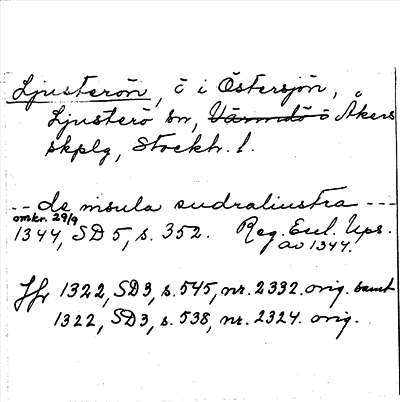 Ljusterön, ö i Östersjön,
Ljusterö sn, Värmdö o Åkers
skplg, Stockh. l.
-- de insula sudraliustra ---
omkr. 29/9
1344, SD 5, s. 352. Reg. Eccl. Ups.
av 1344.
Jfr 1322, SD3, s. 545, nr. 2332. orig. samt
1322, SD3, s. 538, nr. 2324. orig.